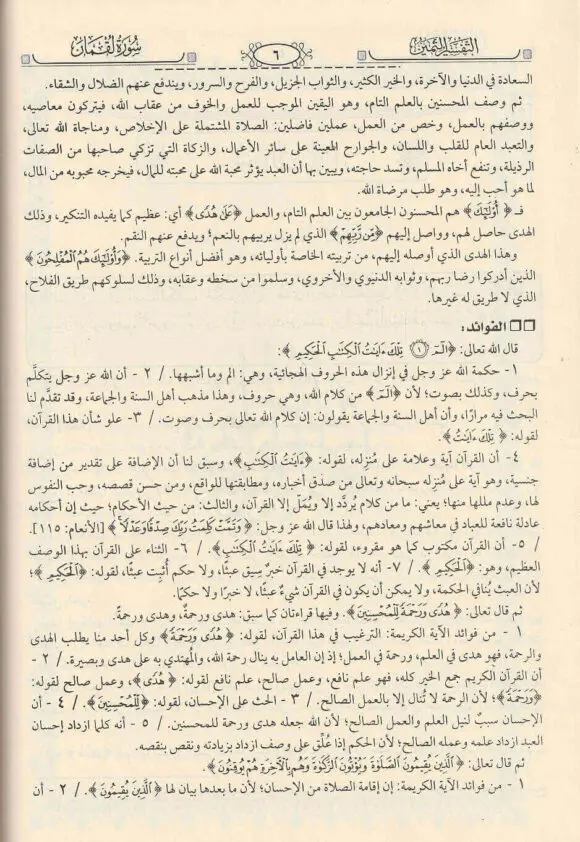 التفسير الثمين
٦
سورة لقمان
السعادة في الدنيا والآخرة، والخير الكثير، والثواب الجزيل، والفرح والسرور، ويندفع عنهم الضلال والشقاء.
ثم وصف المحسنين بالعلم التام، وهو اليقين الموجب للعمل والخوف من عقاب الله، فيتركون معاصيه،
ووصفهم بالعمل، وخص من العمل، عملين فاضلين: الصلاة المشتملة على الإخلاص، ومناجاة الله تعالى،
والتعبد العام للقلب واللسان، والجوارح المعينة على سائر الأعمال، والزكاة التي تزكي صاحبها من الصفات
الرذيلة، وتنفع أخاه المسلم، وتسد حاجته، ويبين بها أن العبد يؤثر محبة الله على محبته للمال، فيخرجه محبوبه من المال،
لما هو أحب إليه، وهو طلب مرضاة الله.
فـ ﴿أُوْلَٰٓئِكَ﴾ هم المحسنون الجامعون بين العلم التام، والعمل ﴿عَلَىٰ هُدًى﴾ أي: عظيم كما يفيده التنكير، وذلك
الهدى حاصل لهم، وواصل إليهم ﴿مِّن رَّبِّهِمْ﴾ الذي لم يزل يربيهم بالنعم؛ ويدفع عنهم النقم.
وهذا الهدى الذي أوصله إليهم، من تربيته الخاصة بأوليائه، وهو أفضل أنواع التربية. ﴿وَأُوْلَٰٓئِكَ هُمُ ٱلْمُفْلِحُونَ﴾
الذين أدركوا رضا ربهم، وثوابه الدنيوي والأخروي، وسلموا من سخطه وعقابه، وذلك لسلوكهم طريق الفلاح،
الذي لا طريق له غيرها.
□□ الفوائد:
قال الله تعالى: ﴿الٓمٓ ۝١ تِلْكَ ءَايَٰتُ ٱلْكِتَٰبِ ٱلْحَكِيمِ﴾:
١ - حكمة الله عز وجل في إنزال هذه الحروف الهجائية، وهي: الم وما أشبهها. / ٢ - أن الله عز وجل يتكلَّم
بحرف، وكذلك بصوت؛ لأن ﴿الٓمٓ﴾ من كلام الله، وهي حروف، وهذا مذهب أهل السنة والجماعة، وقد تقدَّم لنا
البحث فيه مرارًا، وأن أهل السنة والجماعة يقولون: إن كلام الله تعالى بحرف وصوت. / ٣- علو شأن هذا القرآن،
لقوله: ﴿تِلْكَ ءَايَٰتُ﴾.
٤- أن القرآن آية وعلامة على مُنزِله، لقوله: ﴿ءَايَٰتُ ٱلْكِتَٰبِ﴾، وسبق لنا أن الإضافة على تقدير من إضافة
جنسية، وهو آية على مُنزله سبحانه وتعالى من صدق أخباره، ومطابقتها للواقع، ومن حسن قصصه، وحب النفوس
لها، وعدم مللها منها؛ يعني: ما من كلام يُردَّد إلا ويُمَلّ إلا القرآن، والثالث: من حيث الأحكام؛ حيث إن أحكامه
عادلة نافعة للعباد في معاشهم ومعادهم، ولهذا قال الله عز وجل: ﴿وَتَمَّتْ كَلِمَتُ رَبِّكَ صِدْقًا وَعَدْلًا﴾ [الأنعام: ١١٥].
/ ٥- أن القرآن مكتوب كما هو مقروء، لقوله: ﴿تِلْكَ ءَايَٰتُ ٱلْكِتَٰبِ﴾. / ٦- الثناء على القرآن بهذا الوصف
العظيم، وهو: ﴿ٱلْحَكِيمِ﴾. / ٧- أنه لا يوجد في القرآن خبرٌ سِيق عبثًا، ولا حكم أُثبِت عبثًا، لقوله: ﴿ٱلْحَكِيمِ﴾؛
لأن العبث يُنافي الحكمة، ولا يمكن أن يكون في القرآن شيءٌ عبثًا، لا خبرًا ولا حكمًا.
ثم قال تعالى: ﴿هُدًى وَرَحْمَةً لِّلْمُحْسِنِينَ﴾. وفيها قراءتان كما سبق: هدى ورحمةٌ، وهدى ورحمةً.
١ - من فوائد الآية الكريمة: الترغيب في هذا القرآن، لقوله: ﴿هُدًى وَرَحْمَةً﴾ وكل أحد منا يطلب الهدى
والرحمة، فهو هدى في العلم، ورحمة في العمل؛ إذ إن العامل به ينال رحمة الله، والمُهتدي به على هدى وبصيرة. / ٢ -
أن القرآن الكريم جمع الخير كله، فهو علم نافع، وعمل صالح، علم نافع لقوله: ﴿هُدًى﴾، وعمل صالح لقوله:
﴿وَرَحْمَةً﴾؛ لأن الرحمة لا تُنال إلا بالعمل الصالح. / ٣ - الحث على الإحسان، لقوله: ﴿لِّلْمُحْسِنِينَ﴾. / ٤ - أن
الإحسان سببٌ لنيل العلم والعمل الصالح؛ لأن الله جعله هدى ورحمة للمحسنين. / ٥ - أنه كلما ازداد إحسان
العبد ازداد علمه وعمله الصالح؛ لأن الحكم إذا عُلِّق على وصف ازداد بزيادته ونقص بنقصه.
ثم قال تعالى: ﴿ٱلَّذِينَ يُقِيمُونَ ٱلصَّلَوٰةَ وَيُؤْتُونَ ٱلزَّكَوٰةَ وَهُم بِٱلْءَاخِرَةِ هُمْ يُوقِنُونَ﴾.
١ - من فوائد الآية الكريمة: إن إقامة الصلاة من الإحسان؛ لأن ما بعدها بيان لها ﴿ٱلَّذِينَ يُقِيمُونَ﴾. / ٢ - أن